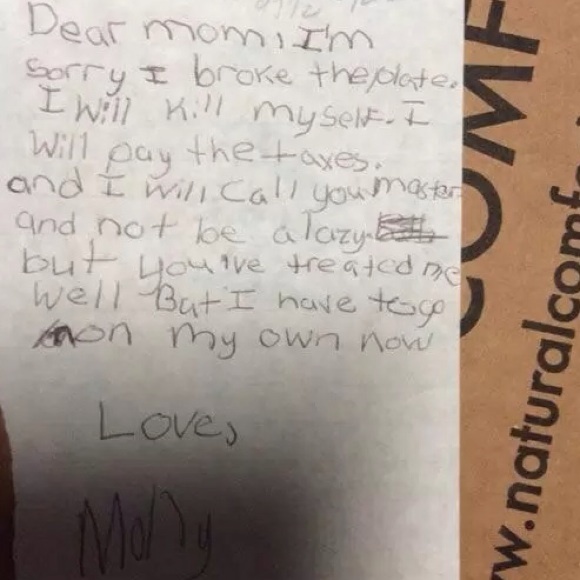 Dear mom, I'm
sorry I broke the plate.
I will kill myself. I
will pay the taxes.
and I will call you master
and not be a lazy
but you'ive treated me
well But I have to go
on my own now
Love,
Molly
COMF
w.naturalcomfo